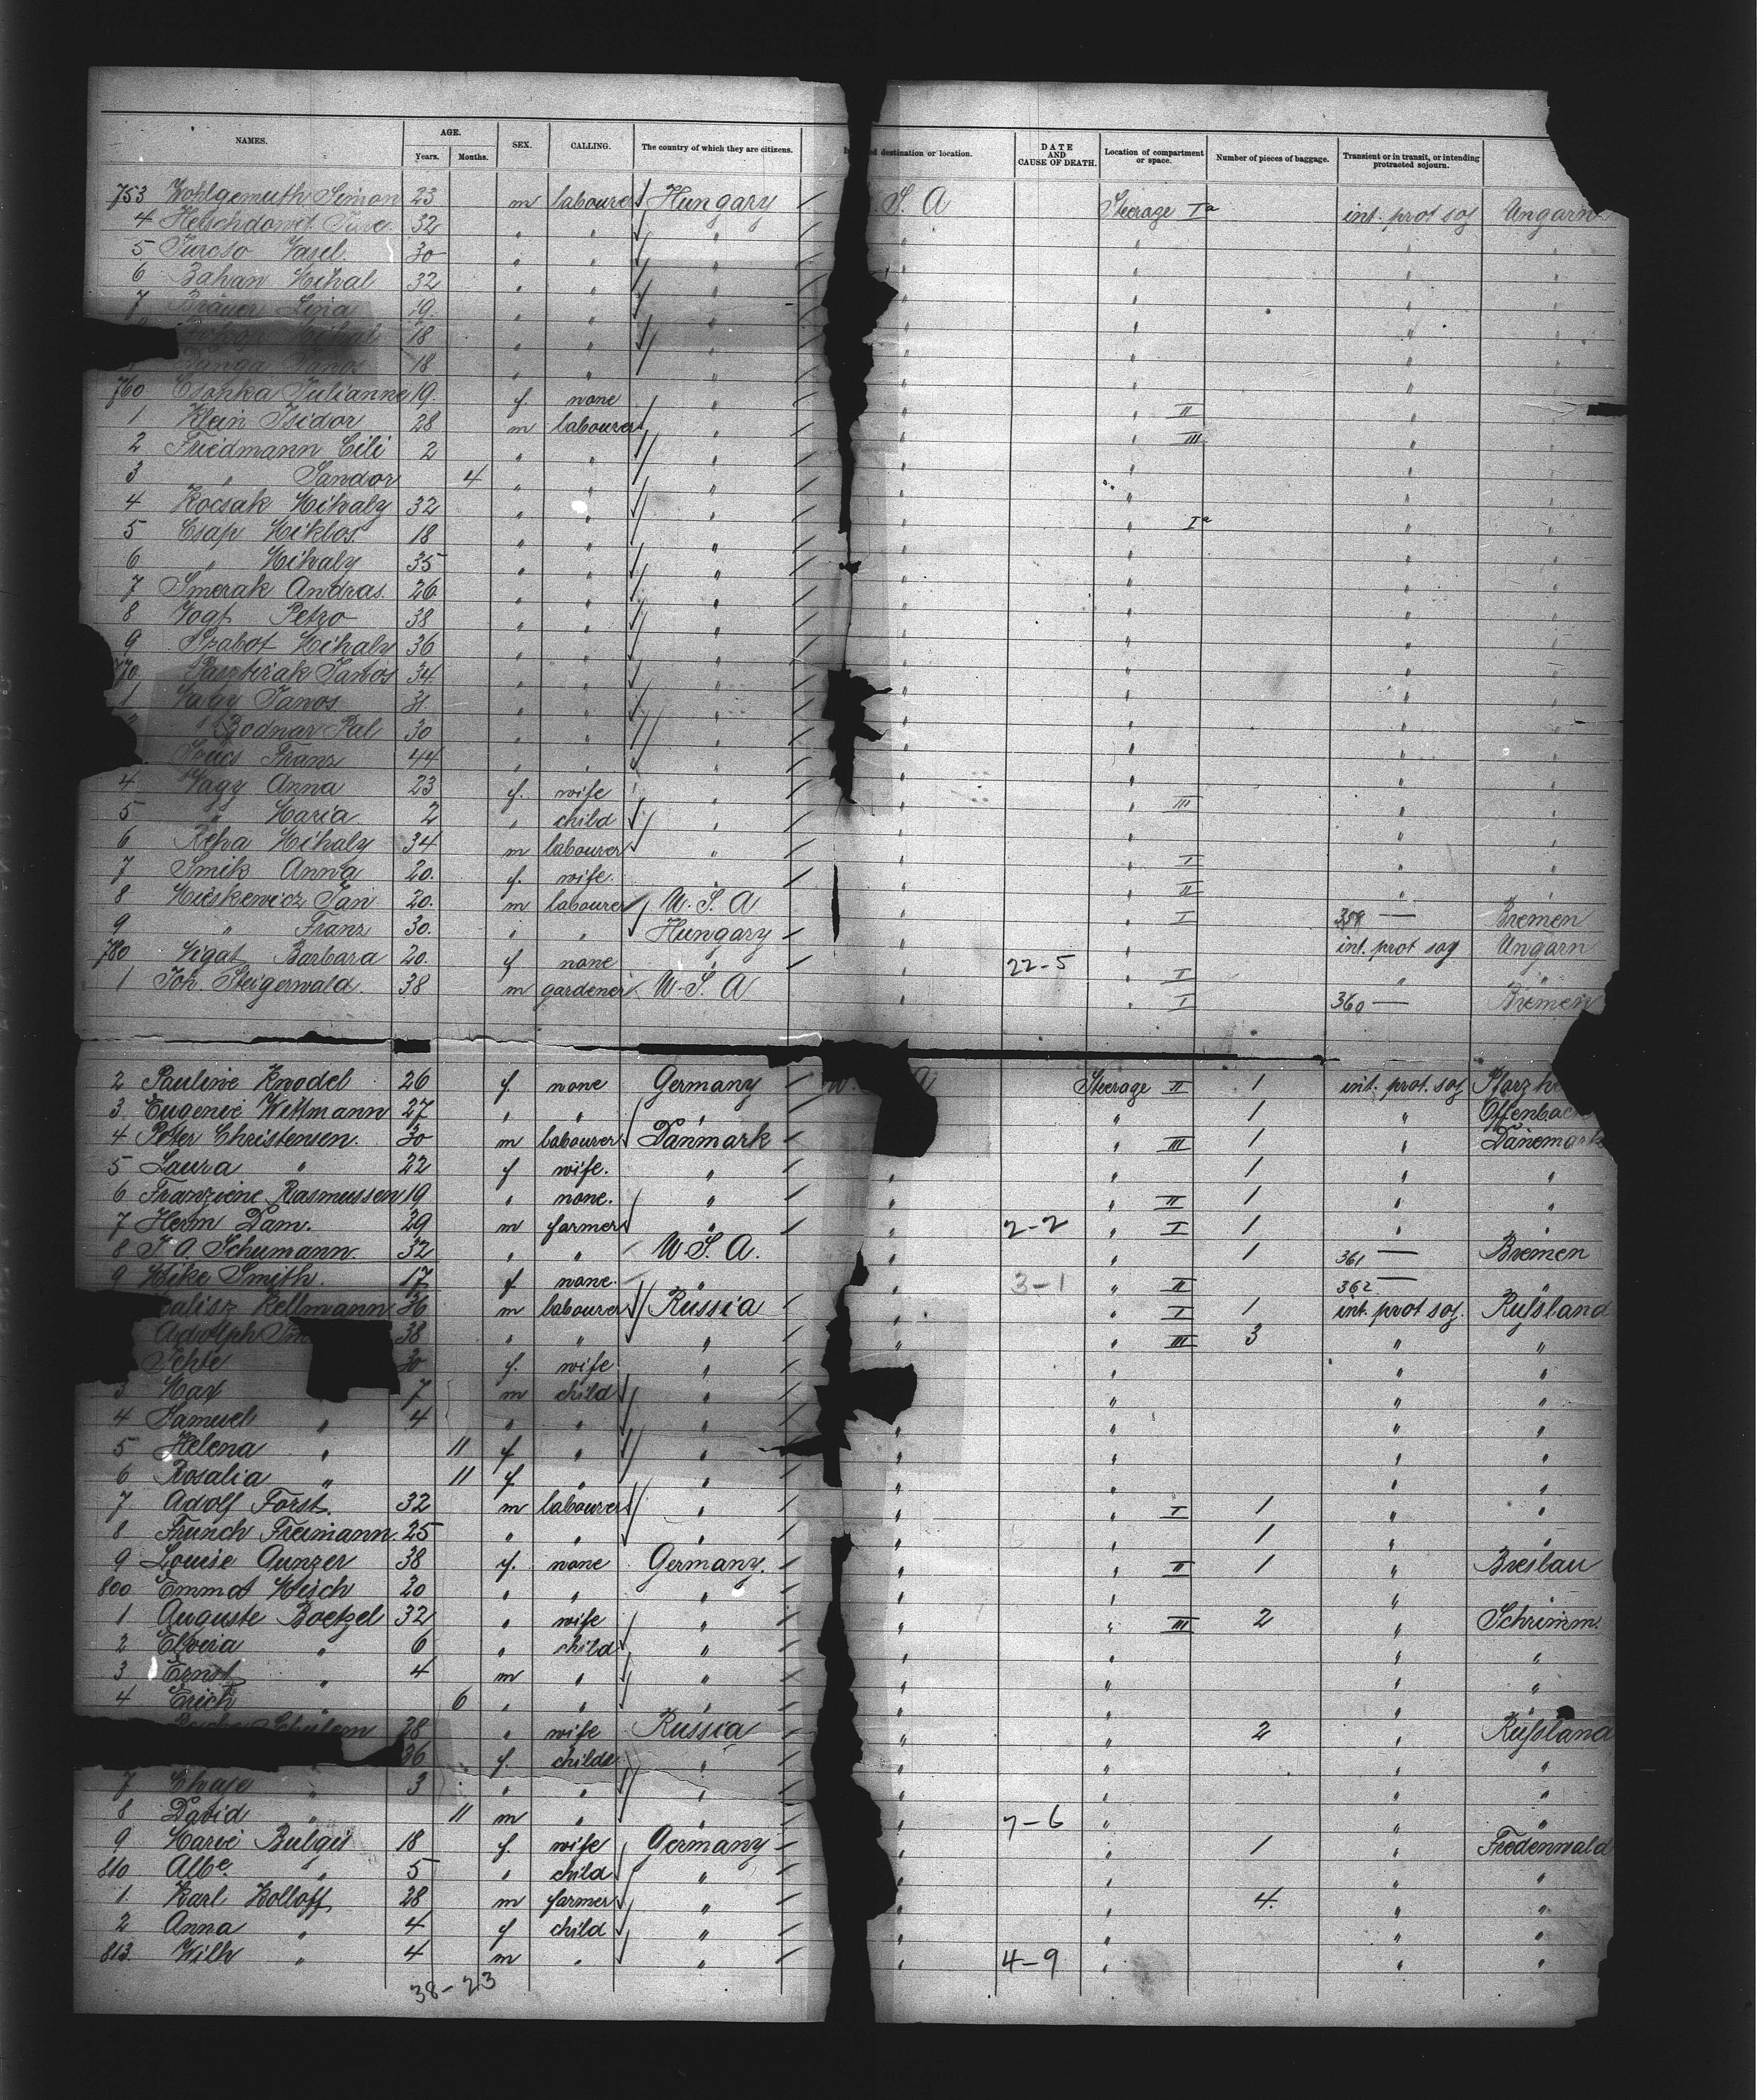 NAMES. AGE. Years. Months. SEX. CALLING. The country of which they are citizens. destination or location. DATE AND CAUSE OF DEATH. Location of compartment or space. Number of pieces of baggage. Transient or in transit, or intending protracted sojourn.
753 Wohlgemuth Simon 23 m labourer Hungary S. A Steerage Ia int. prot soj Ungarn
4 32 " " " " " " "
5 Turcso Vasel 30 " " " " " " "
6 Bahan Mihal 32 " " " " " " "
7 Brauer Lina 19. " " " " " " "
Mihal 18 " " " " " " "
Janos 18 " " " " " " "
760 Csopka Julianne 19. f. none " " " II " "
1 Klein Isidor 28 m labourer " " " III " "
2 Friedmann Cili 2 " " " " " " "
3 " Sandor 4 " " " " " " "
4 Kocsak Mihaly 32 " " " " " Ia " "
5 Csap Miklos 18 " " " " " " "
6 " Mihaly 35 " " " " " " "
7 Smerak Andras. 26 " " " " " " "
8 Vogt Petro 38 " " " " " " "
9 Szabot Mihaly 36 " " " " " " "
770. Janos 34 " " " " " " "
1 Nagy Janos 31. " " " " " " "
2 Bodnar Pal 30 " " " " " " "
Szucs Franz 44 " " " " " " "
4 Nagy Anna 23 f. wife " " " III " "
5 " Maria 2 " child " " " " "
6 Repa Mihaly 34 m labourer " " " I " "
7 Smik Anna 20. f. wife. " " " II " "
8 Mieskewicz Jan 20. m labourer U. S. A " " I 359 — Bremen
9 " Franz 30. " " Hungary " " int. prot soj Ungarn
780 Vigat Barbara 20. f none " " 22-5 " I " "
1 Joh. Steigerwald. 38 m gardener U. S. A " " I 360 — Bremen
2 Pauline Knodel 26 f none Germany A Steerage II 1 int. prot. soj
3 Eugenie Wittmann 27 " " " " 1 " Offenbach
4 Peter Christensen. 30 m labourer Danmark " III 1 " Danemark
5 Laura " 22 f wife. " " " 1 " "
6 Franziene Rasmussen 19 " none. " " " II 1 " "
7 Herm Dam. 29 m farmer " " 2-2 " I 1 " "
8 J. A. Schumann. 32 " " U. S. A. " " 1 361 — Bremen
9 Mike Smith. 17 f none. " " 3-1 " II 362 — "
Kellmann 36 m labourer Russia " " I 1 int. prot soj. Rußland
Adolph 38 " " " " " III 3 " "
30 f. wife " " " " "
3 Max 7 m child " " " " "
4 Samuel " 4 " " " " " " "
5 Helena " 11 f " " " " " "
6 Rosalia " 11 f " " " " " "
7 Adolf Forst. 32 m labourer " " " I 1 " "
8 Frunch Freimann. 25 " " " " " 1 " "
9 Louise Gunzer 38 f. none Germany. " " II 1 " Breslau
800 Emma Misch 20 " " " " " " "
1 Auguste Boetzel 32 " wife " " " III 2 " Schrimm.
2 Elvera " 6 " child " " " " "
3 Ernst " 4 m " " " " " "
4 Erich 6 " " " " " " "
Schulem 28 " wife Russia " " 2 " Rußland
36 f. childr " " " " "
7 Chaje " 3 " " " " " " "
8 David " 11 m " " " 7-6 " " "
9 Marie Bulgis 18 f. wife Germany " " 1 " Fredenwald
810 Albe. " 5 " child " " " " "
1. Karl Kolloff 28 m farmer " " " 4. " "
2 Anna " 4 f child " " " " "
813. Wilh " 4 m " " " 4-9 " " "
38-23